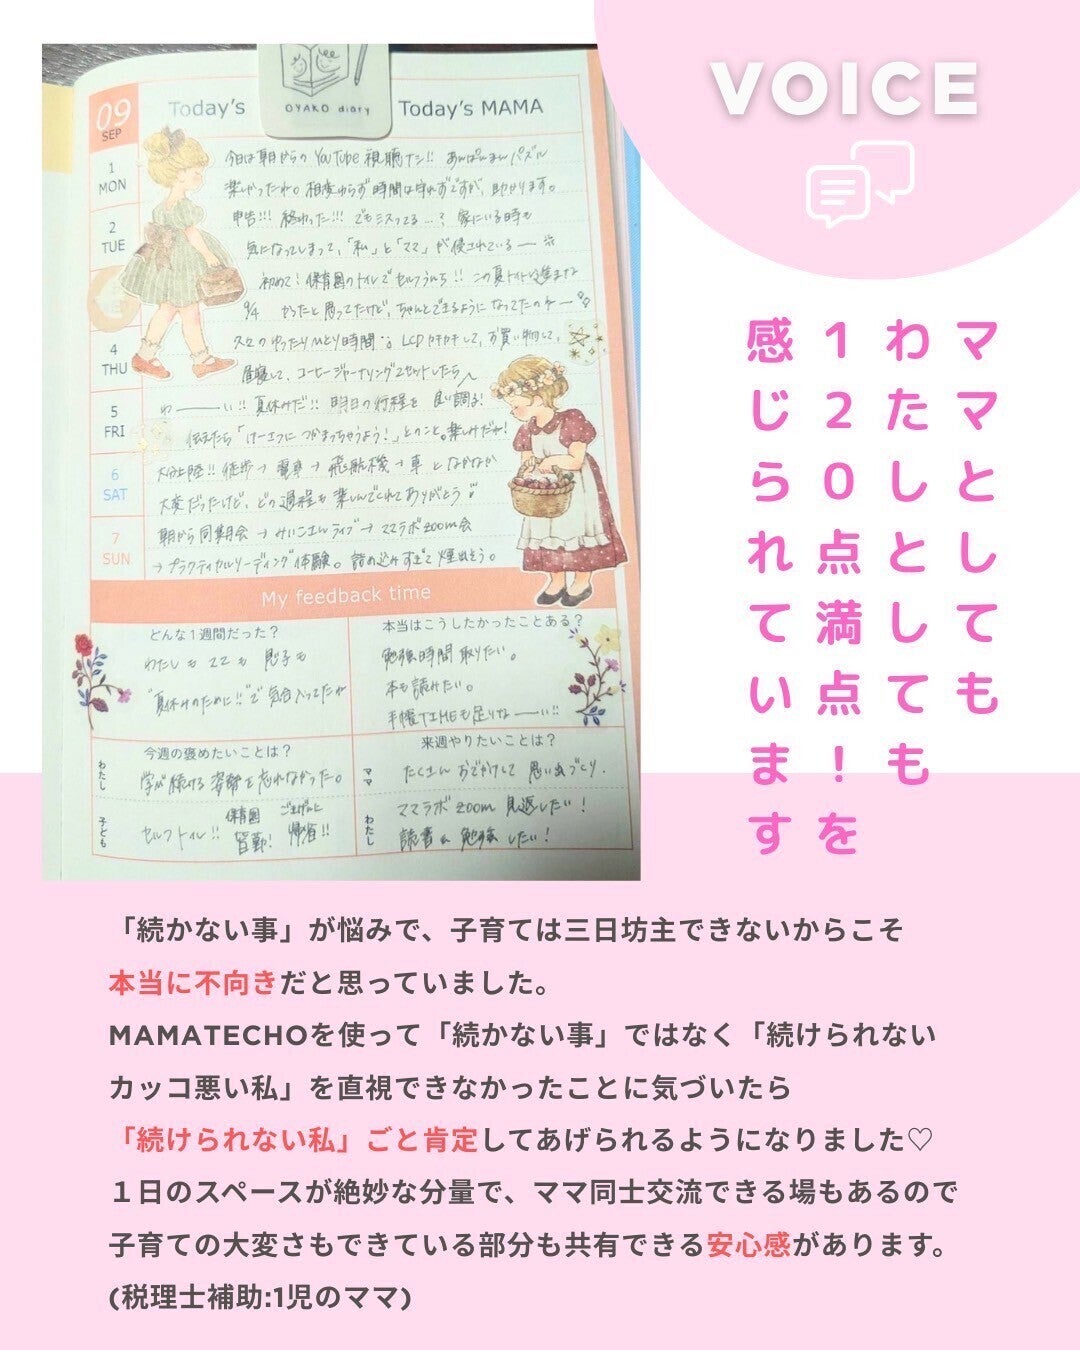 VOICE
ママとしても
わたしとしても
120点満点!を
感じられています
OYAKO diary
09
SEP
Today's
Today's MAMA
1
MON
今日は朝からの YouTube 視聴ナシ!! あんぱんまんパズル
楽しかったね。相変わらず時間は守れずですが、助かります。
2
TUE
申告!!! 終わった!!! でもミスってる…? 家にいる時も
気になってしまって、「私」と「ママ」が侵されている
初めて! 保育園のトイレでセルフうんち!! この夏トイトレ進まな
9/4 かったと思ってたけど、ちゃんとできるようになってたのね
4
THU
久々のゆったりひとり時間 LCD して、お買い物して、
昼寝して、コーヒージャーナリング2セットしたら
5
FRI
わーい!! 夏休みだ!! 明日の行程を
伝えたら「 つかまっちゃうよう!」とのこと。楽しみだね!
6
SAT
大分上陸!! 徒歩→電車→飛行機→車 となかなか
大変だったけど、どの過程も楽しんでくれてありがとう
7
SUN
朝から同期会→ ライブ→ママラボzoom会
→プラクティカルリーディング体験。詰め込みすぎて煙出そう。
My feedback time
どんな1週間だった?
わたしもママも息子も
"夏休みのために!!"で気合入ってたが
本当はこうしたかったことある?
勉強時間取りたい。
本も読みたい。
手帳TIMEも足りなーい!!
今週の褒めたいことは?
わたし
学び続ける姿勢を忘れなかった。
子ども
セルフトイレ!! 保育園皆勤! ごきげんに帰省!!
来週やりたいことは?
ママ
たくさんおでかけして思い出づくり.
わたし
ママラボzoom見返したい!
読書&勉強したい!
「続かない事」が悩みで、子育ては三日坊主できないからこそ
本当に不向きだと思っていました。
MAMATECHOを使って「続かない事」ではなく「続けられない
カッコ悪い私」を直視できなかったことに気づいたら
「続けられない私」ごと肯定してあげられるようになりました♡
１日のスペースが絶妙な分量で、ママ同士交流できる場もあるので
子育ての大変さもできている部分も共有できる安心感があります。
(税理士補助:1児のママ)